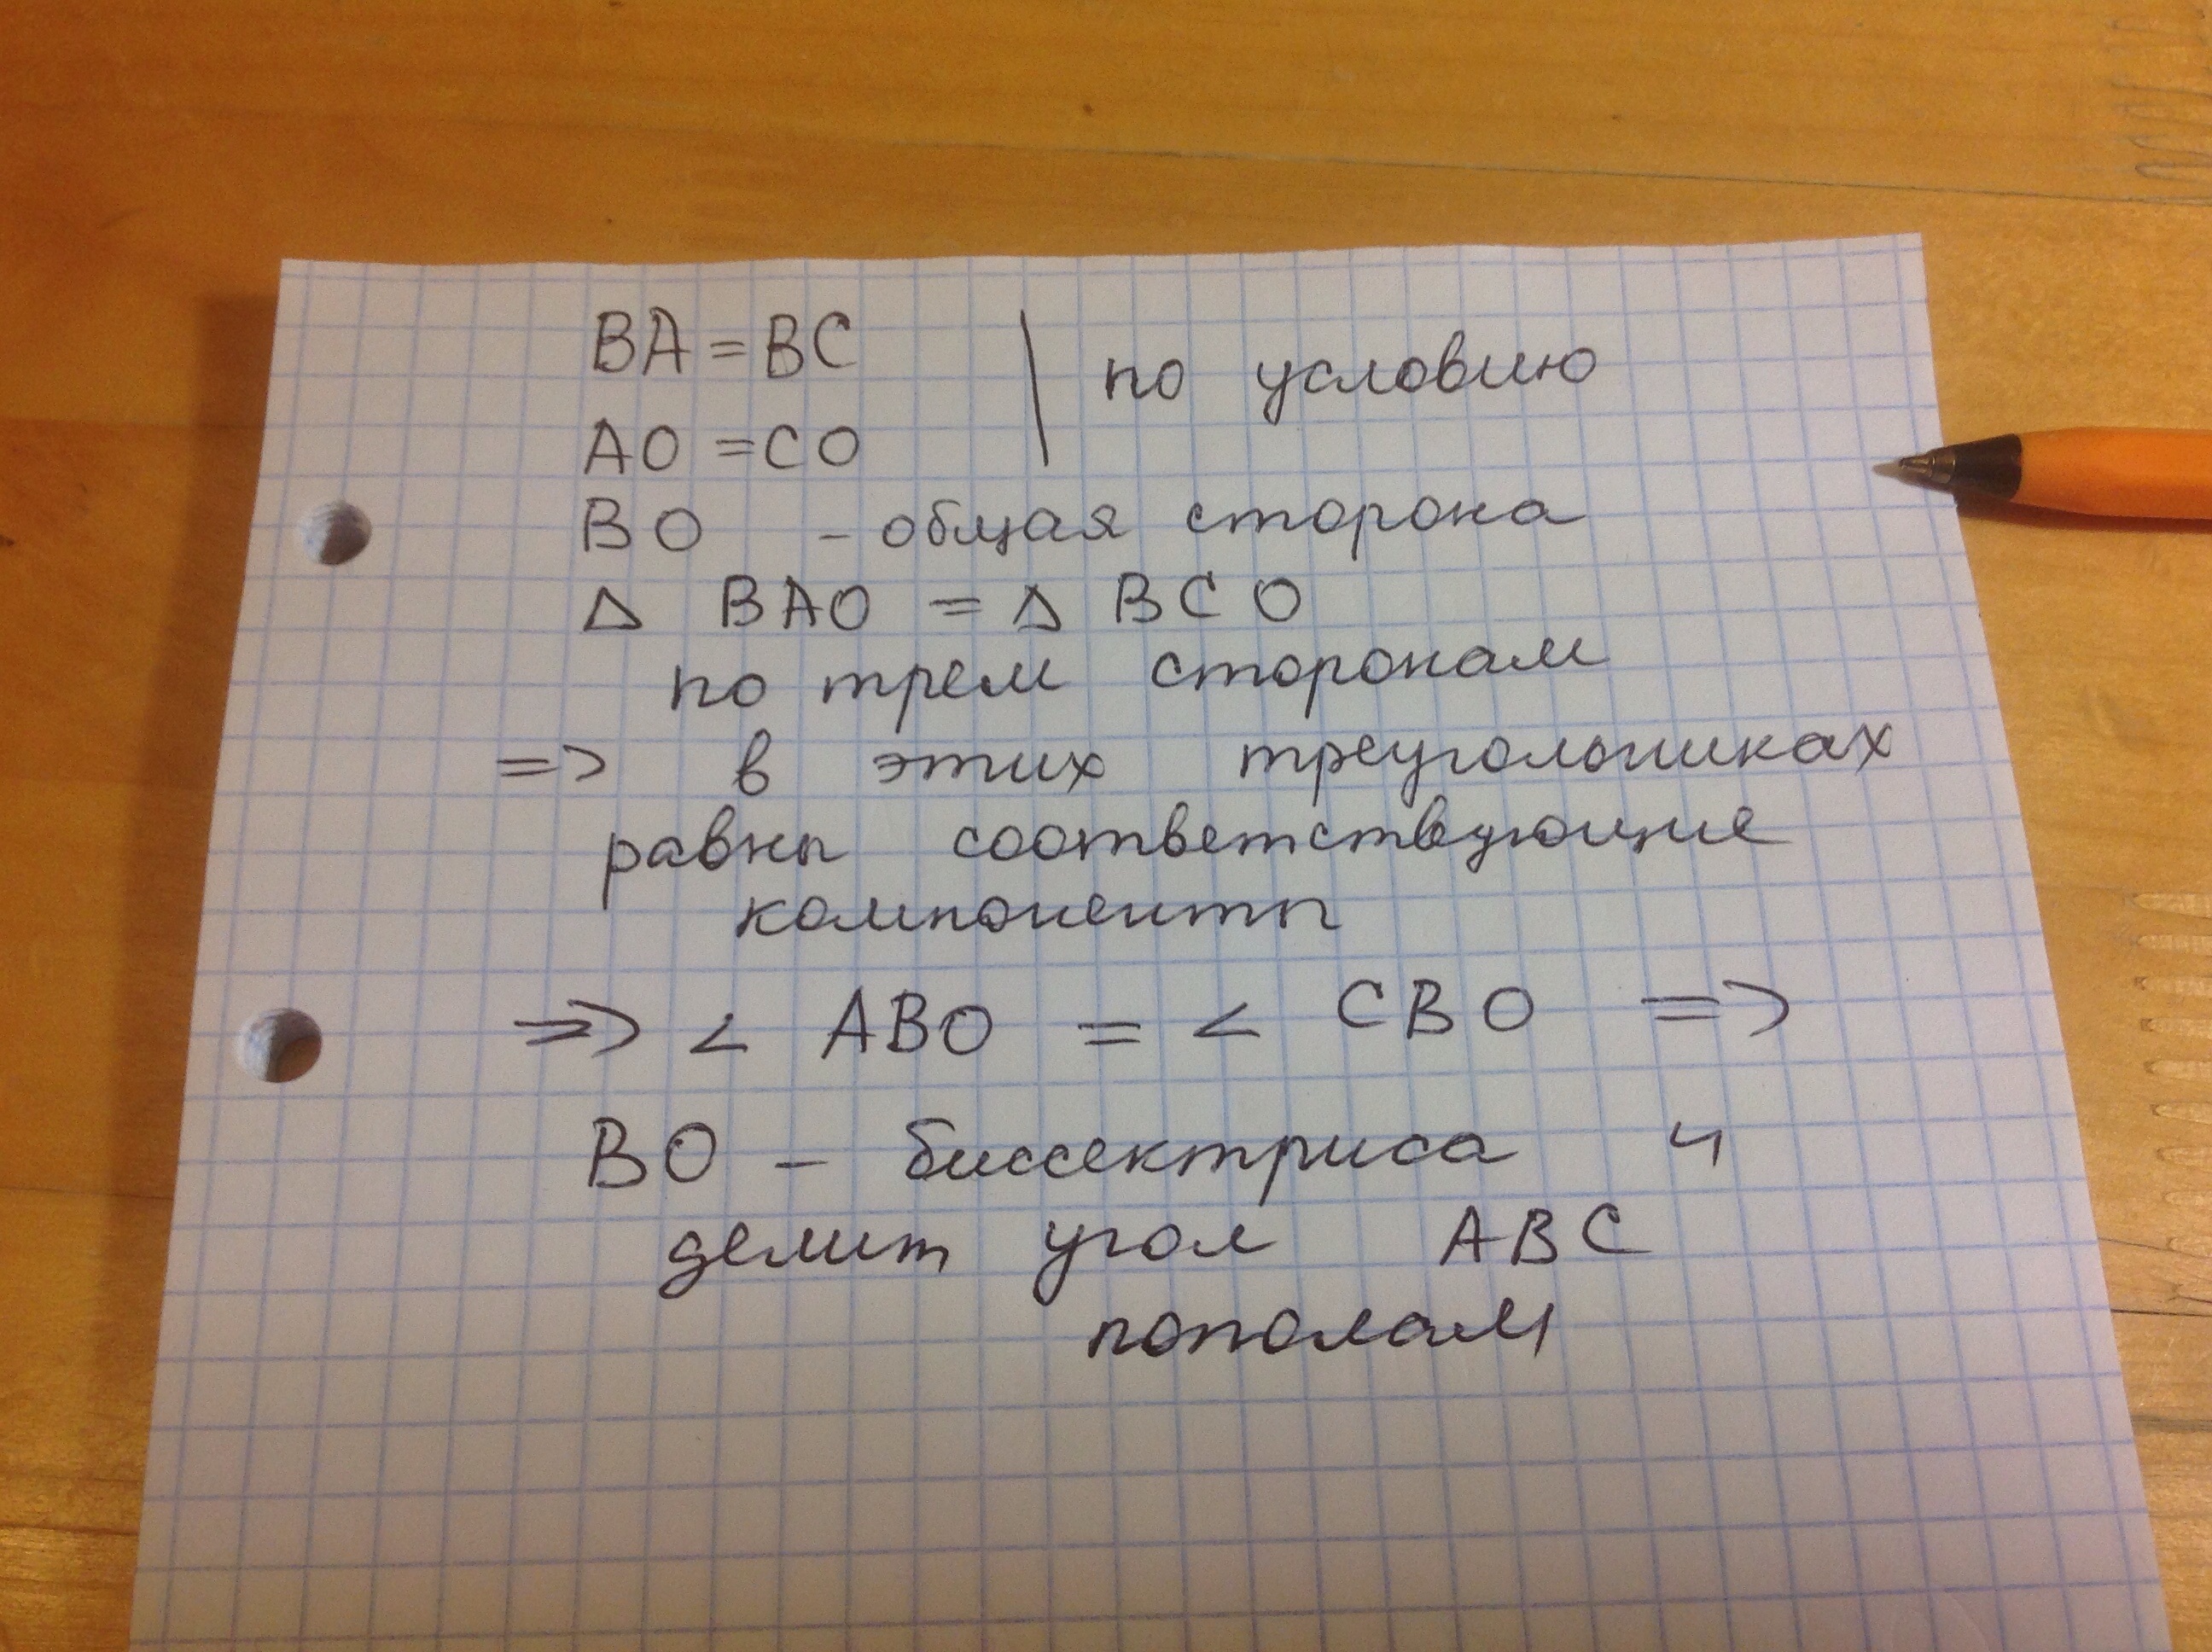 BA = BC | по условию
AO = CO
BO - общая сторона
Δ BAO = Δ BCO
по трем сторонам
=> в этих треугольниках
равны соответствующие
компоненты
=> < ABO = < CBO =>
BO - биссектриса и
делит угол ABC
пополам